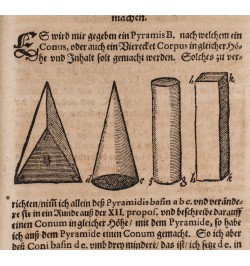 machen.
ES wird mir gegeben ein Pyramis B. nach welchem ein
Conus, oder auch ein Viereckt Corpus in gleicher Hö-
he vnd Inhalt solt gemacht werden. Solches zu ver-
a g h
B
d e
richten/ nim̃ ich allein deß Pyramidis basin a b c. vnd verände-
re sie in ein Runde auß der XII. propos. vnd beschreibe darauff
einen Conum in gleicher Höhe/ mit dem Pyramide, so habe
ich auß dem Pyramide einen Conum gemacht. So ich aber
deß Coni basin d e. vmb drey mindere/ das ist/ ich setze d e. in